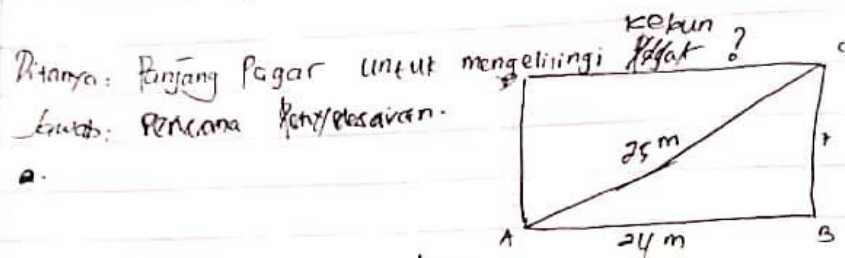 kebun
Ditanya: Panjang Pagar untuk mengelilingi ?
Jawab: Rencana Penyelesaian.
a.
D
C
25 m
A
24 m
B